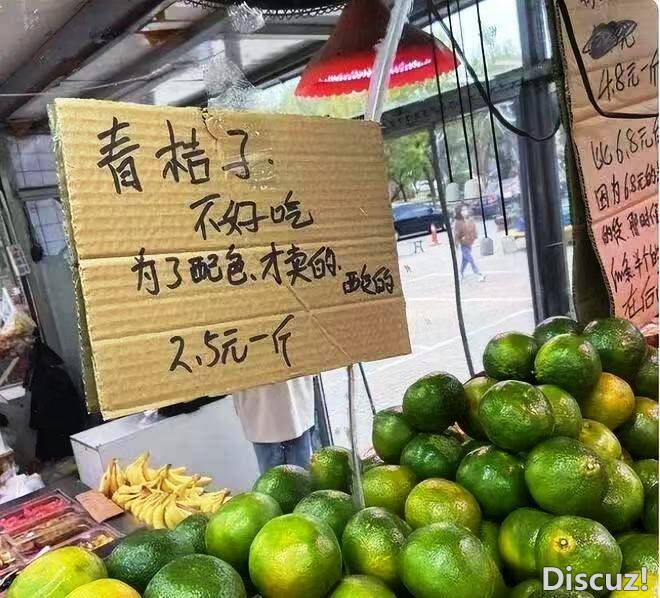 青桔子.
不好吃
为了配色、才卖的、酸的
2.5元一斤
4.8元一斤
6.8元
因为6.8元的
Discuz!